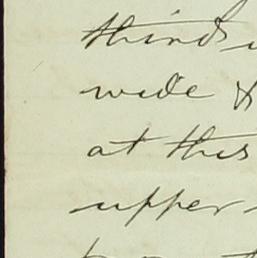 third
wide &
at this
upper